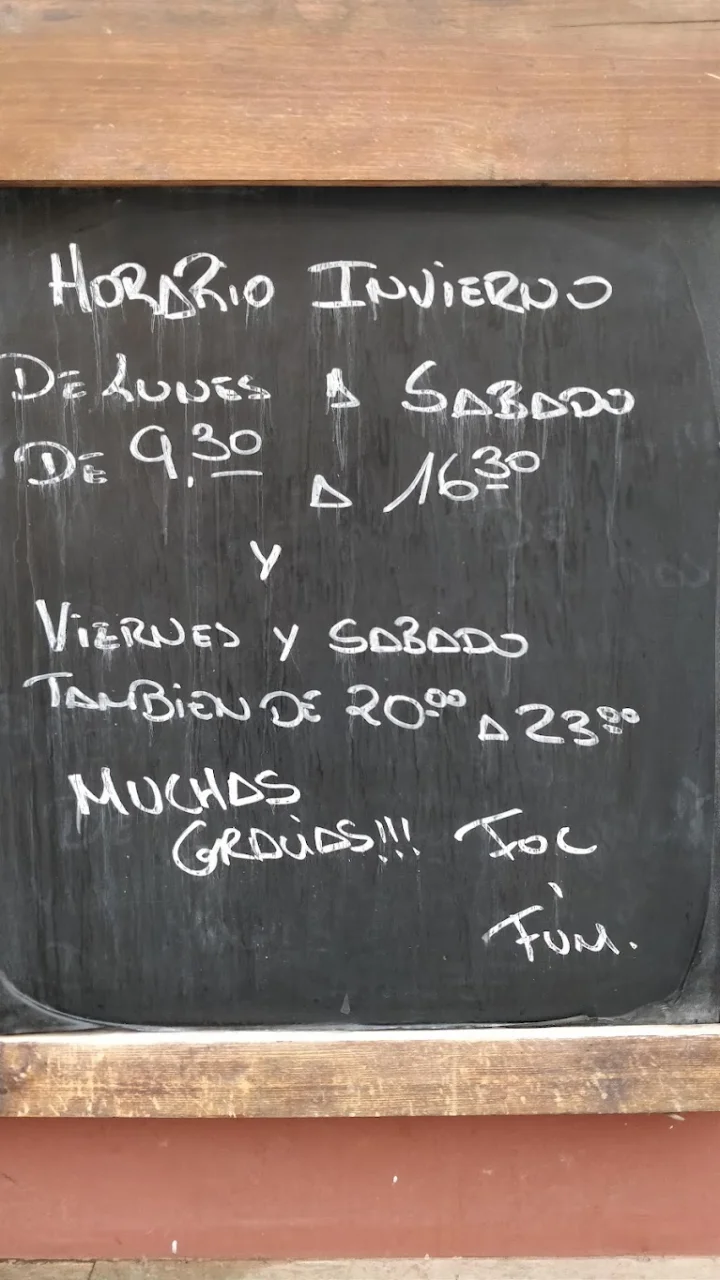 HORARIO INVIERNO
DE LUNES A SABADO
DE 9.30 A 16 30
Y
VIERNES Y SABADO
TAMBIEN DE 20 00 A 23 00
MUCHAS
GRACIAS!!! FOC
i
FUM.